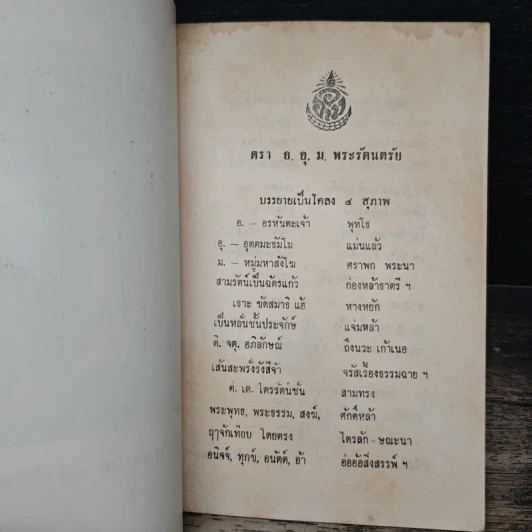 ตรา อ. อุ. ม. พระรัตนตรัย
บรรยายเป็นโคลง ๔ สุภาพ
อ. – อรหันตะเจ้า พุทโธ
อุ. – อุตตมะธัมโม แม่นแล้ว
ม. – หมู่มหาสังโฆ ศราพก พระนา
สามรัตน์เป็นฉัตรแก้ว ก่องหล้าธาตรี ฯ
เฮาะ ขัดสมาธิ แฮ้ หางหยัก
เป็นหลั่นชั้นประจักษ์ แจ่มหล้า
ติ. จตุ. อภิลักษณ์ ถึงนวะ เก้าเนอ
เส้นสะพรั่งรังสีจ้า จรัสเรืองธรรมฉาย ฯ
ต่. เต. ไตรรัตน์ชั้น สามทรง
พระพุทธ, พระธรรม, สงฆ์, ศักดิ์หล้า
ฤๅจักเทียบ โดยตรง ไตรลัก - ษณะนา
อนิจจ์, ทุกข์, อนัตต์, อ้า อ่ออ้อสิ่งสรรพ์ ฯ